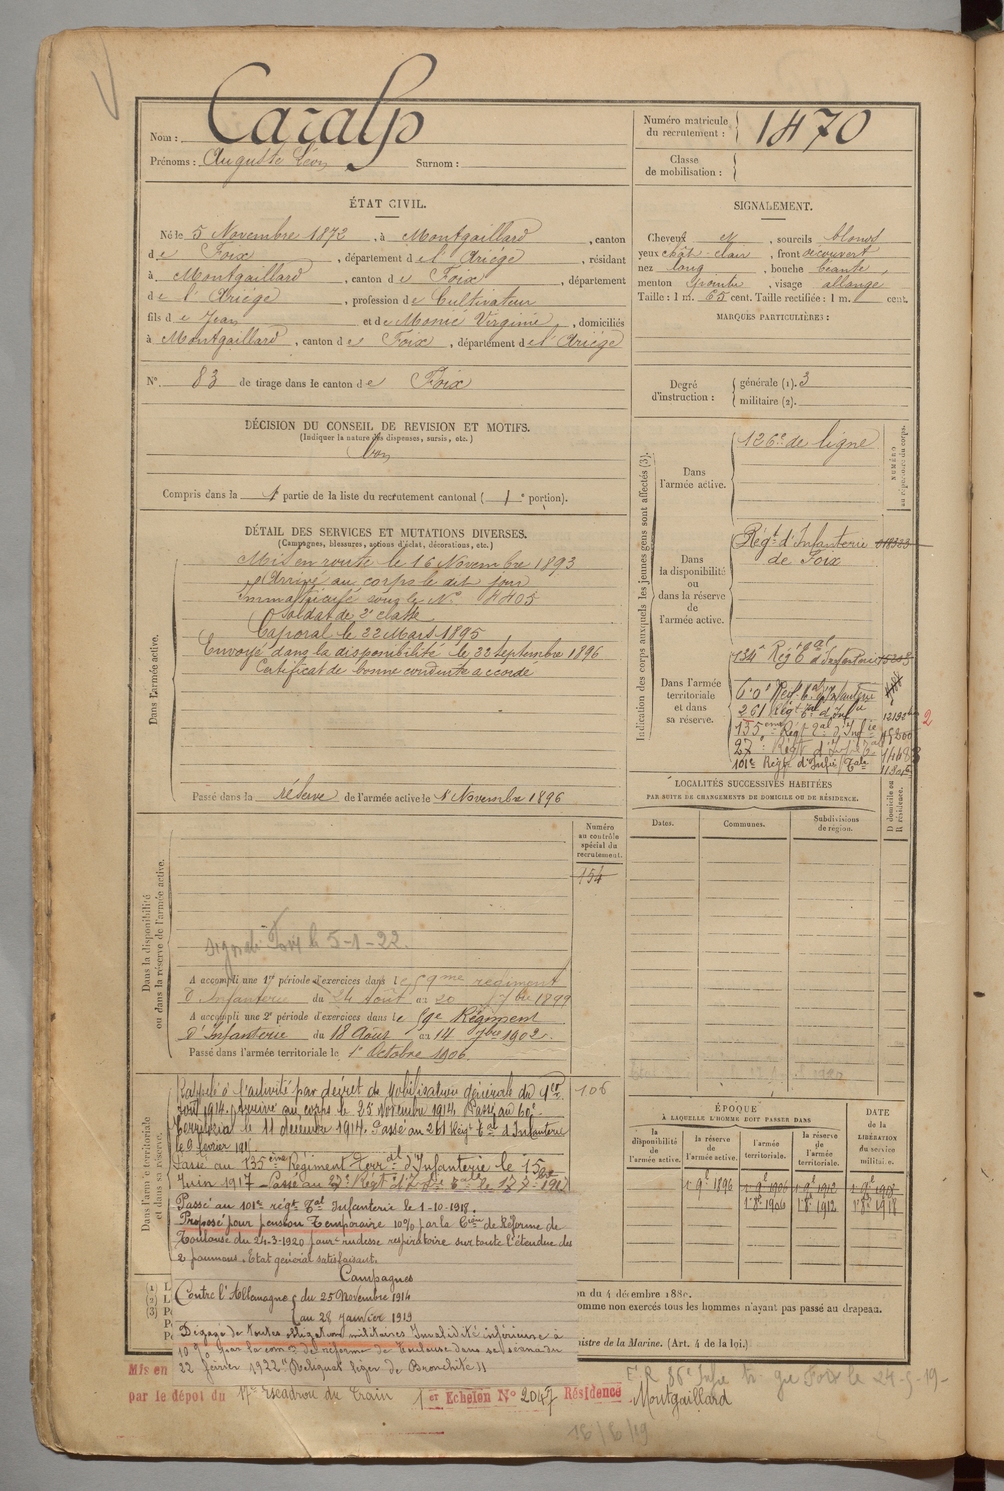 Nom : Caralp
Prénoms : Auguste Léon Surnom :
Numéro matricule du recrutement : 1470
Classe de mobilisation :
ÉTAT CIVIL.
Né le 5 Novembre 1872, à Montgaillard, canton
de Foix, département de l'Ariège, résidant
à Montgaillard, canton de Foix, département
de l'Ariège, profession de Cultivateur
fils de Jean et de Monié Virginie, domiciliés
à Montgaillard, canton de Foix, département de l'Ariège
N° 83 de tirage dans le canton de Foix
SIGNALEMENT.
Cheveux et, sourcils blonds
yeux chât. clair, front découvert
nez long, bouche béante,
menton, visage allongé
Taille : 1 m. 65 cent. Taille rectifiée : 1 m. cent.
MARQUES PARTICULIÈRES :
Degré d'instruction : générale (1). 3
militaire (2).
DÉCISION DU CONSEIL DE REVISION ET MOTIFS.
(Indiquer la nature des dispenses, sursis, etc.)
bon
Compris dans la 1 partie de la liste du recrutement cantonal ( 1e portion).
DÉTAIL DES SERVICES ET MUTATIONS DIVERSES.
(Campagnes, blessures, actions d'éclat, décorations, etc.)
Dans l'armée active.
Mis en route le 16 Novembre 1893
Arrivé au corps le dit jour
Immatriculé sous le N° 4405
Soldat de 2e classe
Caporal le 22 Mars 1895
Envoyé dans la disponibilité le 22 septembre 1896
Certificat de bonne conduite accordé
Passé dans la réserve de l'armée active le 1 Novembre 1896
Indication des corps auxquels les jeunes gens sont affectés (3).
NUMÉRO au répertoire du corps.
Dans l'armée active.
126e de ligne
Dans la disponibilité ou dans la réserve de l'armée active.
Régt d'Infanterie
de Foix
Dans l'armée territoriale et dans sa réserve.
134e Régt d'Infanterie
261 Régt
135ème Régt d'Infie
27e Régt d'Inf
101e Régt d'Infie Tale
2
LOCALITÉS SUCCESSIVES HABITÉES
PAR SUITE DE CHANGEMENTS DE DOMICILE OU DE RÉSIDENCE.
Dates. Communes. Subdivisions de région. D domicile ou R résidence.
Numéro au contrôle spécial du recrutement.
154
Dans la disponibilité ou dans la réserve de l'armée active.
le 5-1-22.
A accompli une 1re période d'exercices dans le 59me régiment
d'Infanterie du 24 Août au 20 7bre 1899
A accompli une 2e période d'exercices dans le 59e Régiment
d'Infanterie du 18 Août au 14 7bre 1902.
Passé dans l'armée territoriale le 1er Octobre 1906.
Dans l'armée territoriale et dans sa réserve.
106
Rappelé à l'activité par décret de mobilisation générale du 1er
Août 1914. Arrivé au corps le 25 Novembre 1914. Passé au 60e
Territorial le 11 décembre 1914. Passé au 261 Régt Tal d'Infanterie
le 9 février
Passé au 135ème Régiment Terral d'Infanterie le 15
Juin 1917 - Passé au 27e Régt
Passé au 101e régt Tal Infanterie le 1-10-1918.
Proposé pour pension Temporaire 10% par la Cion de Réforme de
Toulouse du 24-3-1920 pour rudesse respiratoire sur toute l'étendue des
2 poumons. Etat général satisfaisant.
Campagnes
Contre l'Allemagne du 25 Novembre 1914
au 28 Janvier 1919
Dégagé de toutes obligations militaires. Invalidité inférieure à
10% par la com. de réforme de Toulouse dans sa séance du
22 février 1922 "Reliquat léger de Bronchite"
ÉPOQUE
À LAQUELLE L'HOMME DOIT PASSER DANS
la disponibilité de l'armée active. la réserve de l'armée active. l'armée territoriale. la réserve de l'armée territoriale.
DATE de la LIBÉRATION du service militaire.
1 9e 1896 1 9e 1906 1 9e 1912
1 8e 1906 1 8e 1912 1 8e 1918
(1)
(2)
(3)
on du 4 décembre 1889.
omme non exercés tous les hommes n'ayant pas passé au drapeau.
nistre de la Marine. (Art. 4 de la loi.)
Mis en
par le dépôt du 17e Escadron du Train 1er Echelon N° 2047 Résidence Montgaillard
le 24-5-19-